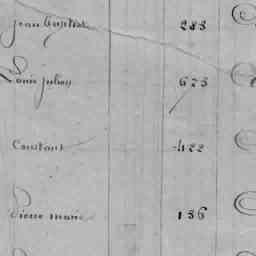 Jean Baptist 288
Louis Julien 623
Constant 422
Pierre Marie 186